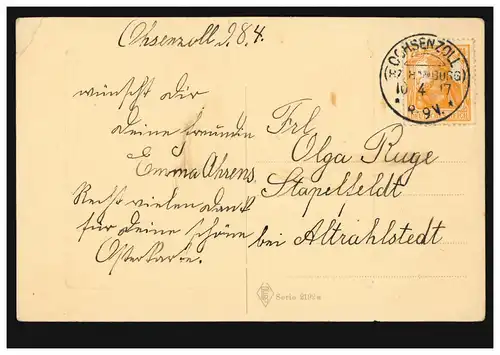 Ochsenzoll d. 8.4.
wünscht dir
deine Freundin
Emma Ahrens
Recht vielen Dank
für deine schöne
Osterkarte.
Frl.
Olga Ruge
Stapelfeldt
bei Altrahlstedt
OCHSENZOLL
(BZ. HAMBURG)
10 4 17
8-9V.
Serie 2192